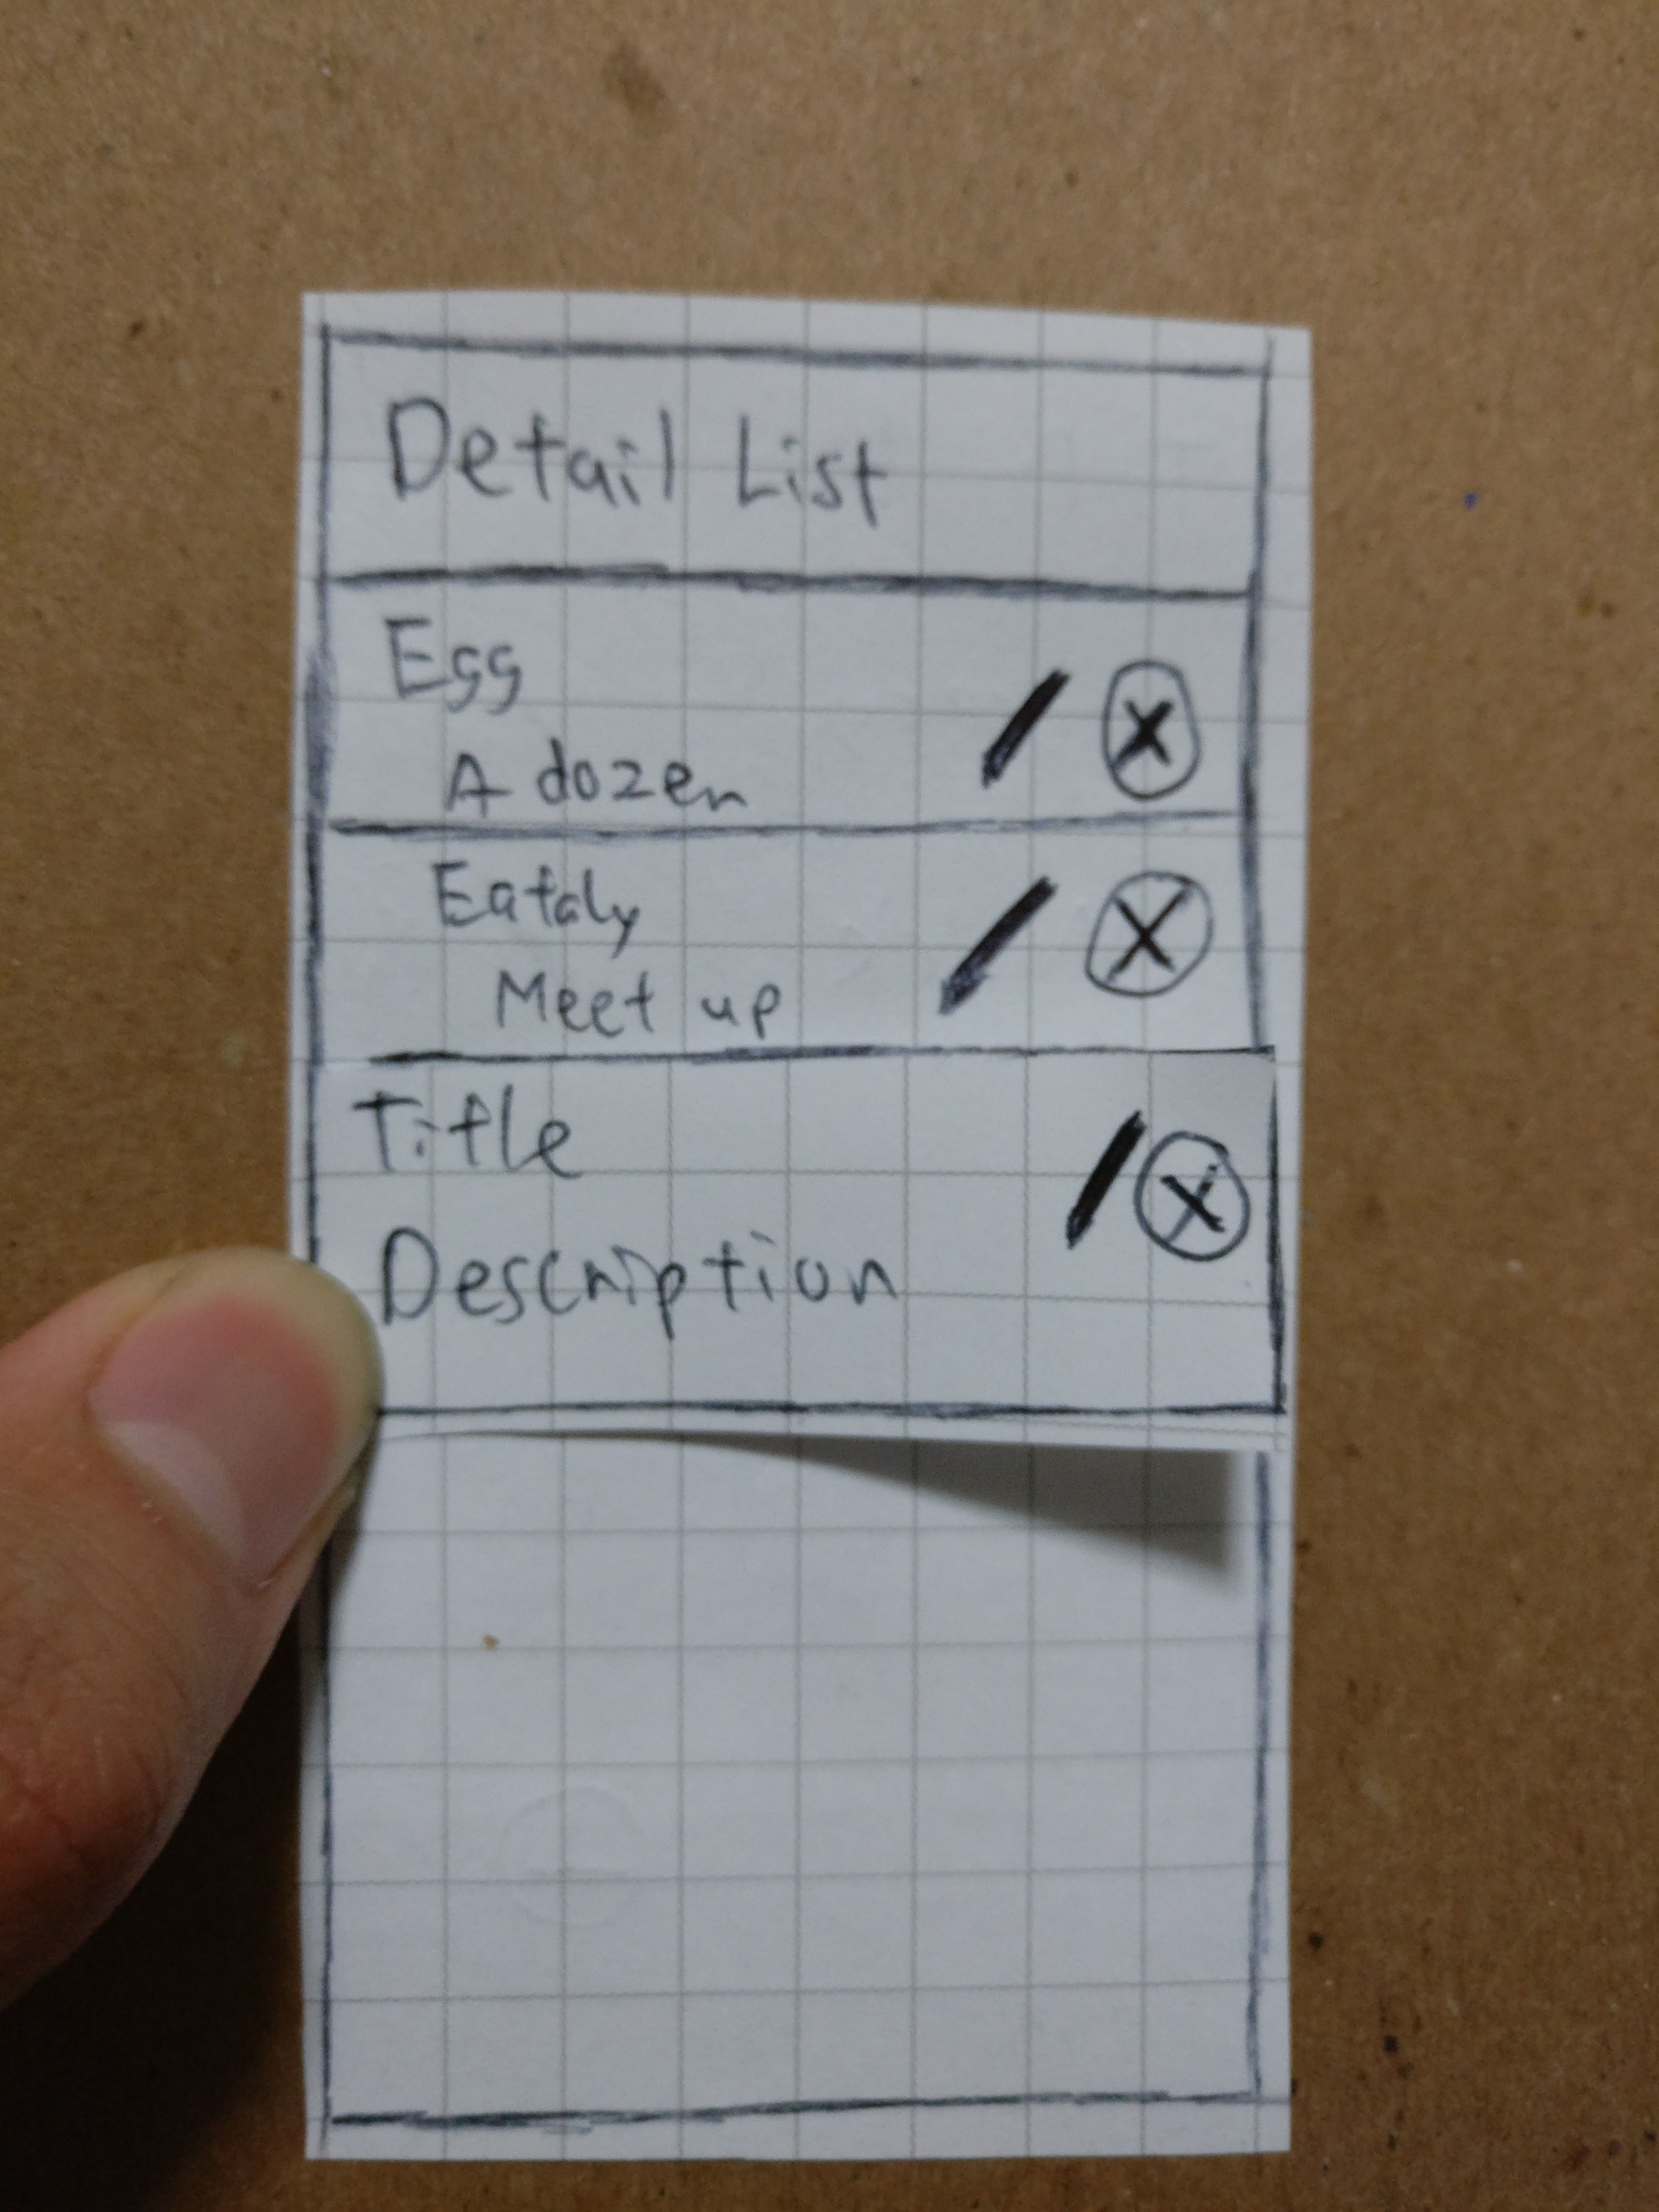 Detail List
Egg
A dozen
Eataly
Meet up
Title
Description